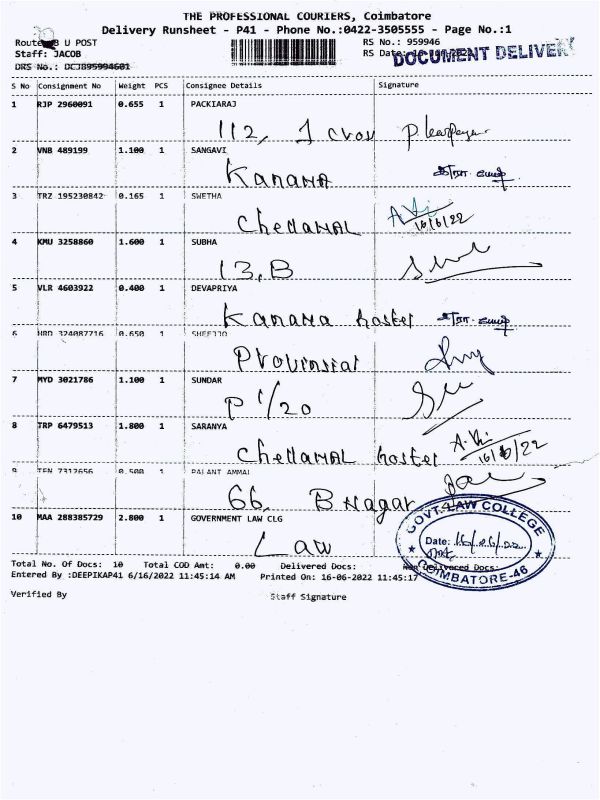 THE PROFESSIONAL COURIERS, Coimbatore
Delivery Runsheet - P41 - Phone No.:0422-3505555 - Page No.:1
B U POST
RS No.: 959946
Staff: JACOB
RS Date:
DOCUMENT DELIVERY
DRS No.: DCJ895994601
S No Consignment No Weight PCS Consignee Details Signature
1 RJP 2960091 0.655 1 PACKIARAJ
112, 1 cross
2 VNB 489199 1.100 1 SANGAVI
Kanama
3 TRZ 195230842 0.165 1 SWETHA
Chellamal
16/6/22
4 KMU 3258860 1.600 1 SUBHA
13,B
5 VLR 4603922 0.400 1 DEVAPRIYA
Kanama hostel
6 HRD 324087716 0.650 1 SHEEJJO
Provinsial
7 MYD 3021786 1.100 1 SUNDAR
P 1/20
8 TRP 6479513 1.800 1 SARANYA
Chellamal hostel
16/6/22
9 TEN 7312656 0.500 1 PALANI AMMAL
66, B Nagar
10 MAA 288385729 2.800 1 GOVERNMENT LAW CLG
Law
GOVT. LAW COLLEGE
Date: 16/06/22
COIMBATORE-46
Total No. Of Docs: 10 Total COD Amt: 0.00 Delivered Docs: Non Delivered Docs:
Entered By :DEEPIKAP41 6/16/2022 11:45:14 AM Printed On: 16-06-2022 11:45:17
Verified By Staff Signature